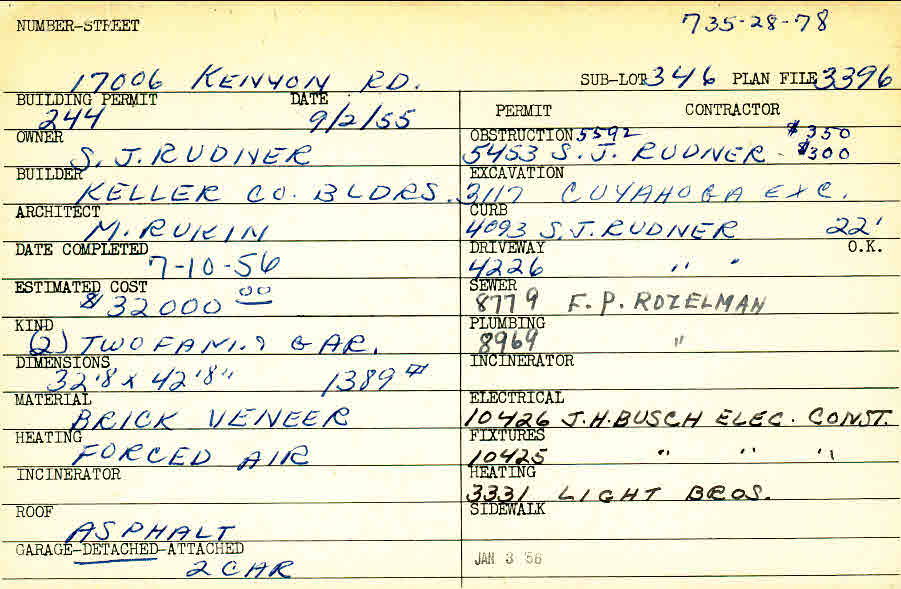 NUMBER-STREET 735-28-78
17006 KENYON RD. SUB-LOT 346 PLAN FILE 3396
BUILDING PERMIT DATE
244 9/2/55
OWNER
S. J. RUDNER
BUILDER
KELLER CO. BLDRS.
ARCHITECT
M. RUKIN
DATE COMPLETED
7-10-56
ESTIMATED COST
$ 32000 00
KIND
(2) TWO FAM. & GAR.
DIMENSIONS
32'8 x 42'8" 1389 #
MATERIAL
BRICK VENEER
HEATING
FORCED AIR
INCINERATOR
ROOF
ASPHALT
GARAGE-DETACHED-ATTACHED
2 CAR
PERMIT CONTRACTOR
OBSTRUCTION 5592 $350
5453 S. J. RUDNER - $300
EXCAVATION
3117 CUYAHOGA EXC.
CURB
4093 S. J. RUDNER 22'
DRIVEWAY O.K.
4226 " "
SEWER
8779 F. P. ROZELMAN
PLUMBING
8969 "
INCINERATOR
ELECTRICAL
10426 J.H. BUSCH ELEC. CONST.
FIXTURES
10425 " " "
HEATING
3331 LIGHT BROS.
SIDEWALK
JAN 3 '56